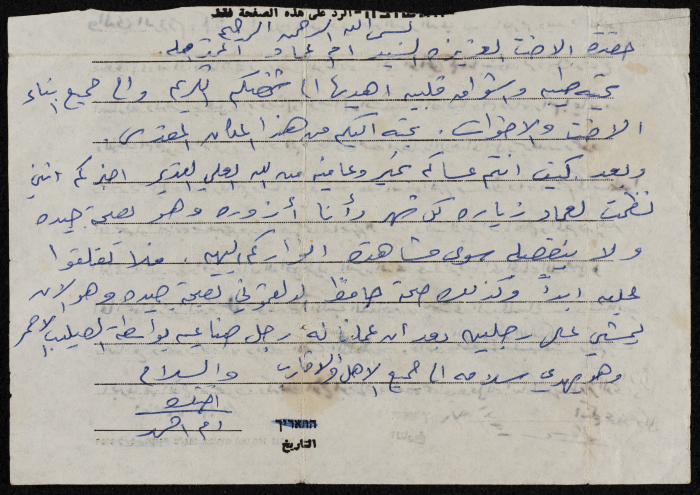 الرد على هذه الصفحة فقط
بسم الله الرحمن الرحيم
حضرة الاخت العزيزه السيده ام عماد المحترمه.
تحيه طيبه واشواق قلبيه اهديها الى شخصكم الكريم والى جميع ابناء
الاخت ولاخوات. تحيه اليكم من هذا المكان المقدس.
وبعد كيف انتم عساكم بخير وعافيه من الله العلي القدير اخبركم انني
نظمت لعماد زياره كل شهر وأنا أزوره وهو بصحة جيده
ولا ينقصه سوى مشاهدة انواركم البهيه. فلا تقلقوا
عليه ابداً وكذلك صحة حافظ ابو لغوش بصحة جيده وهو الان
يمشي على رجليه بعد ان عملنا له رجل صناعيه بواسطة الصليب الاحمر
وهو يهدي سلامه الى جميع الاهل والاقارب والسلام
اختكم
ام احمد
התאריך
التاريخ